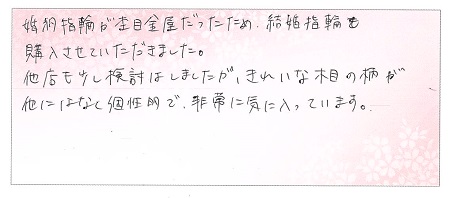 婚約指輪が杢目金屋だったため、結婚指輪も
購入させていただきました。
他店も少し検討はしましたが、きれいな木目の柄が
他にはなく個性的で、非常に気に入っています。